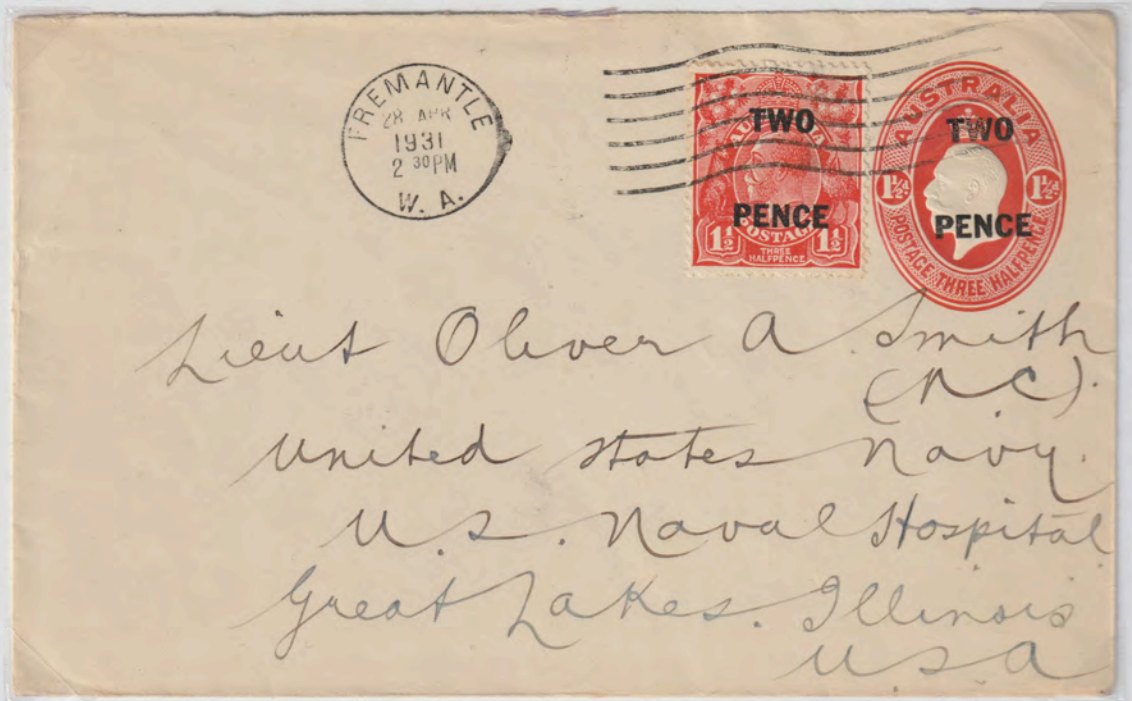 FREMANTLE
28 APR
1931
2 30 PM
W. A.
AUSTRALIA
TWO
PENCE
POSTAGE
1½ 1½
THREE
HALFPENCE
AUSTRALIA
TWO
1½d 1½d
PENCE
POSTAGE THREE HALFPENCE
Lieut Oliver A. Smith
United States Navy.
U.S. Naval Hospital
Great Lakes. Illinois
USA